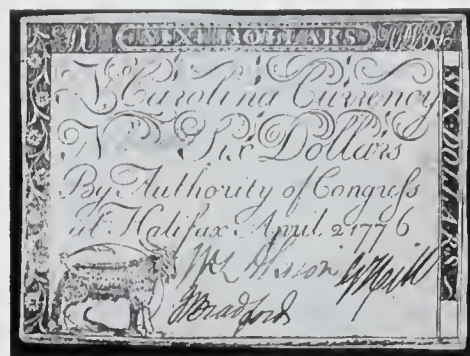 SIX DOLLARS
N Carolina Currency
N Six Dollars
By Authority of Congress
at Halifax April 2 1776
W Hill
J Bradford
SIX DOLLARS